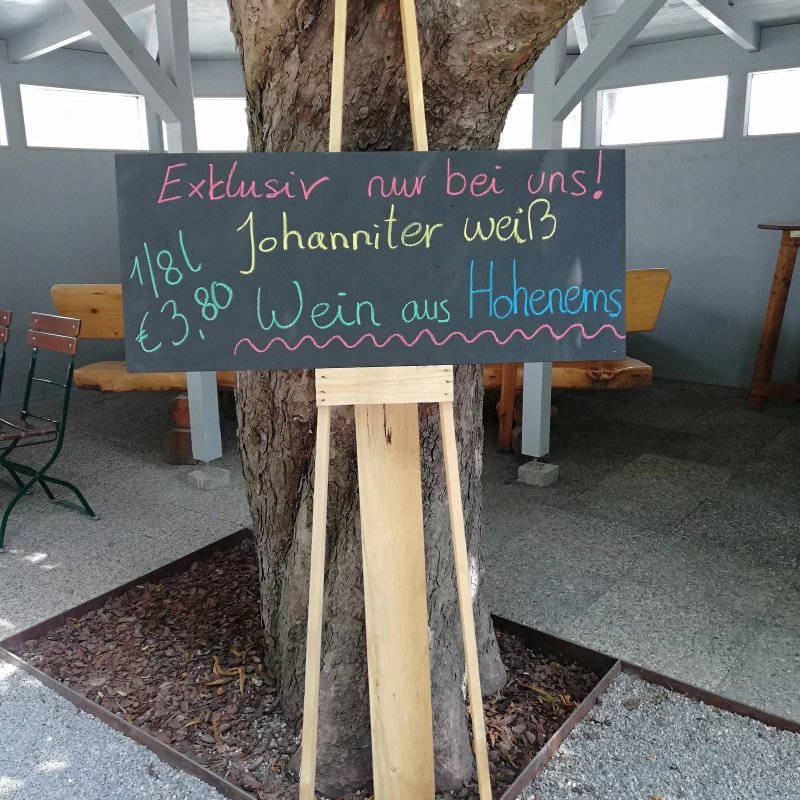 Exklusiv nur bei uns!
Johanniter weiß
1/8l
€3,80
Wein aus Hohenems